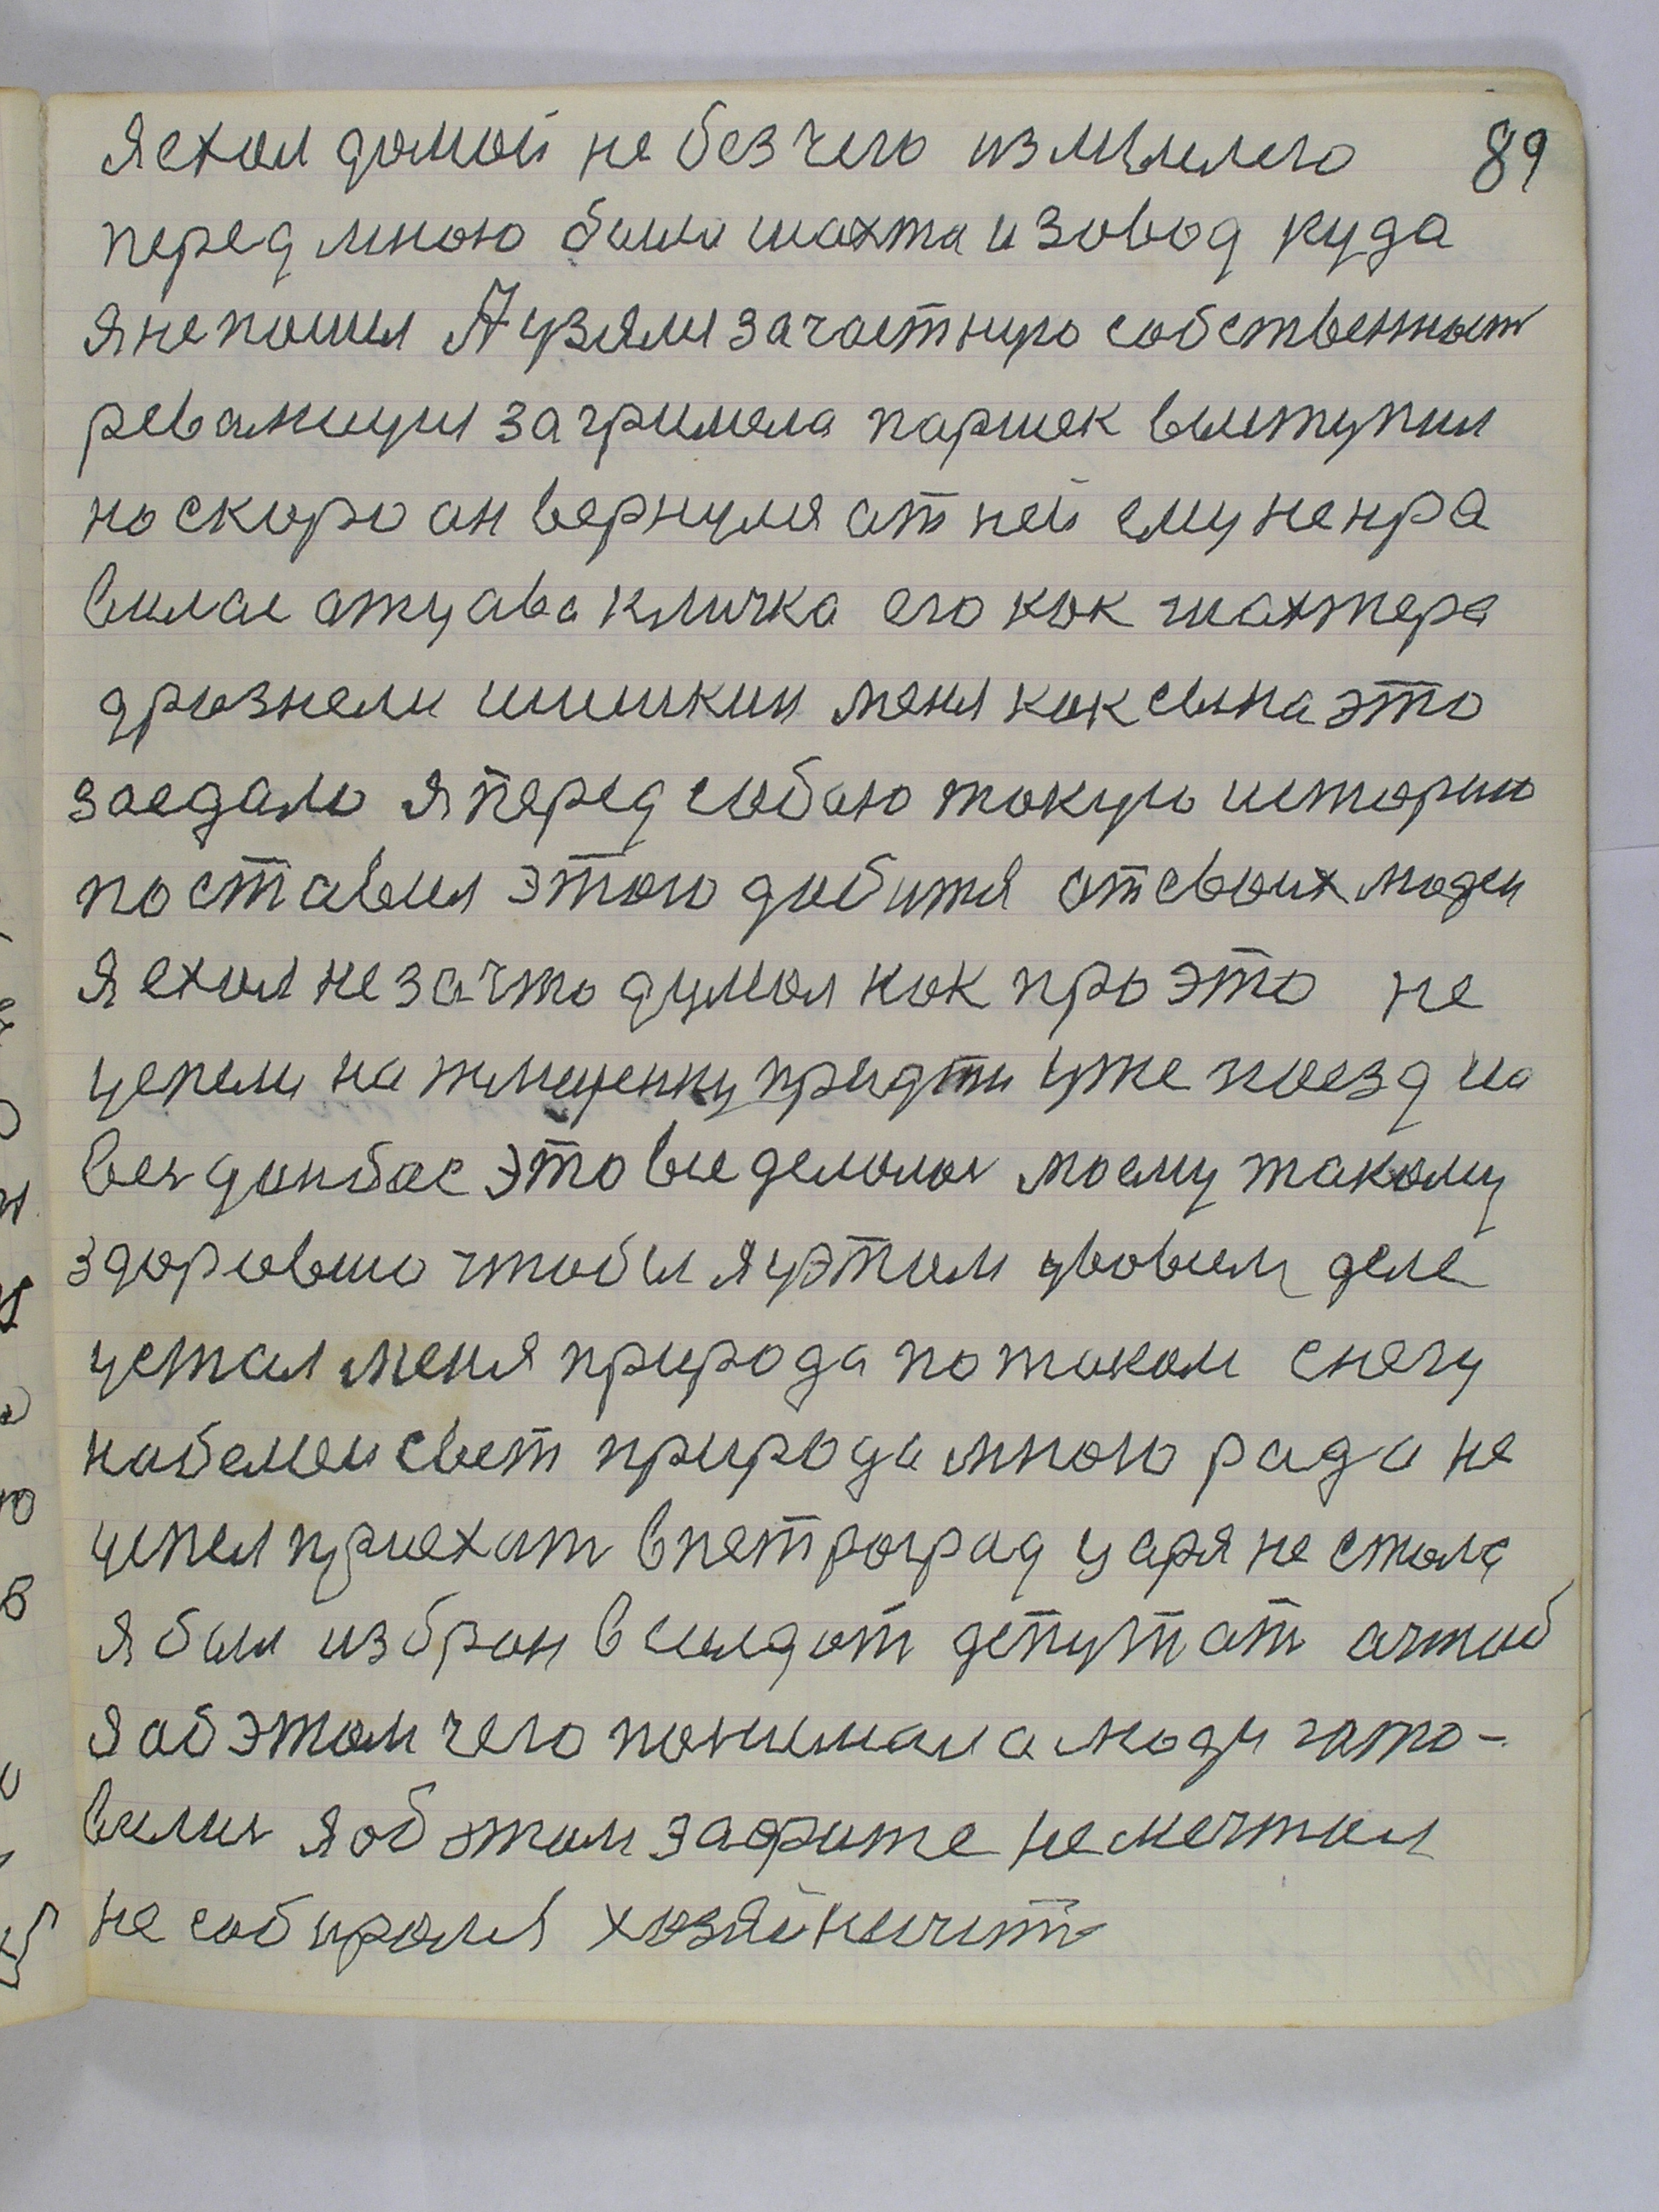 89
я ехол домой не без чего измылего
перед мною была шахта и завод куда
я не пошел А узяли за частную собственност
революцыя загримела паршек выступил
но скоро он вернулся от ней ему не нра
вилас отцава кличка его как шахтера
дразнели шишкин меня как сына это
заедало я перед собою такую историю
поставил этого добится от своих людей
я ехол не за что думол как про это не
успели на жмеренку придти уже поезд на
вес донбас это выделолос моему такому
здоровию чтобы я у этим у новыем деле
устал меня природа по таком снегу
на белыей свет природа мною рада не
успел приехат в петроград царя не стола
я был избран в солдат депутат а чтоб
я об этом чего понимал а люди гото-
вилис я об этом зарание не мечтал
не собиролся хозяйничит